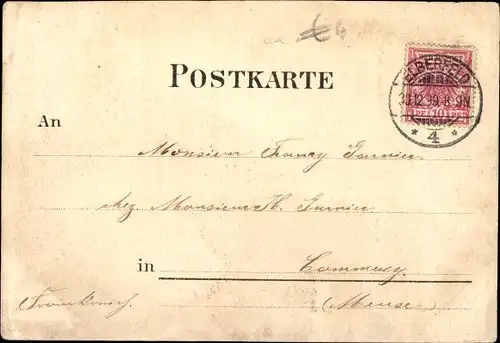 POSTKARTE
ELBERFELD
30.12.99. 8-9N.
* 4 *
PF 10 PF
An
Monsieur Franz Garnier
chez Monsieur H. Garnier
in Commercy.
Frankreich (Meuse)